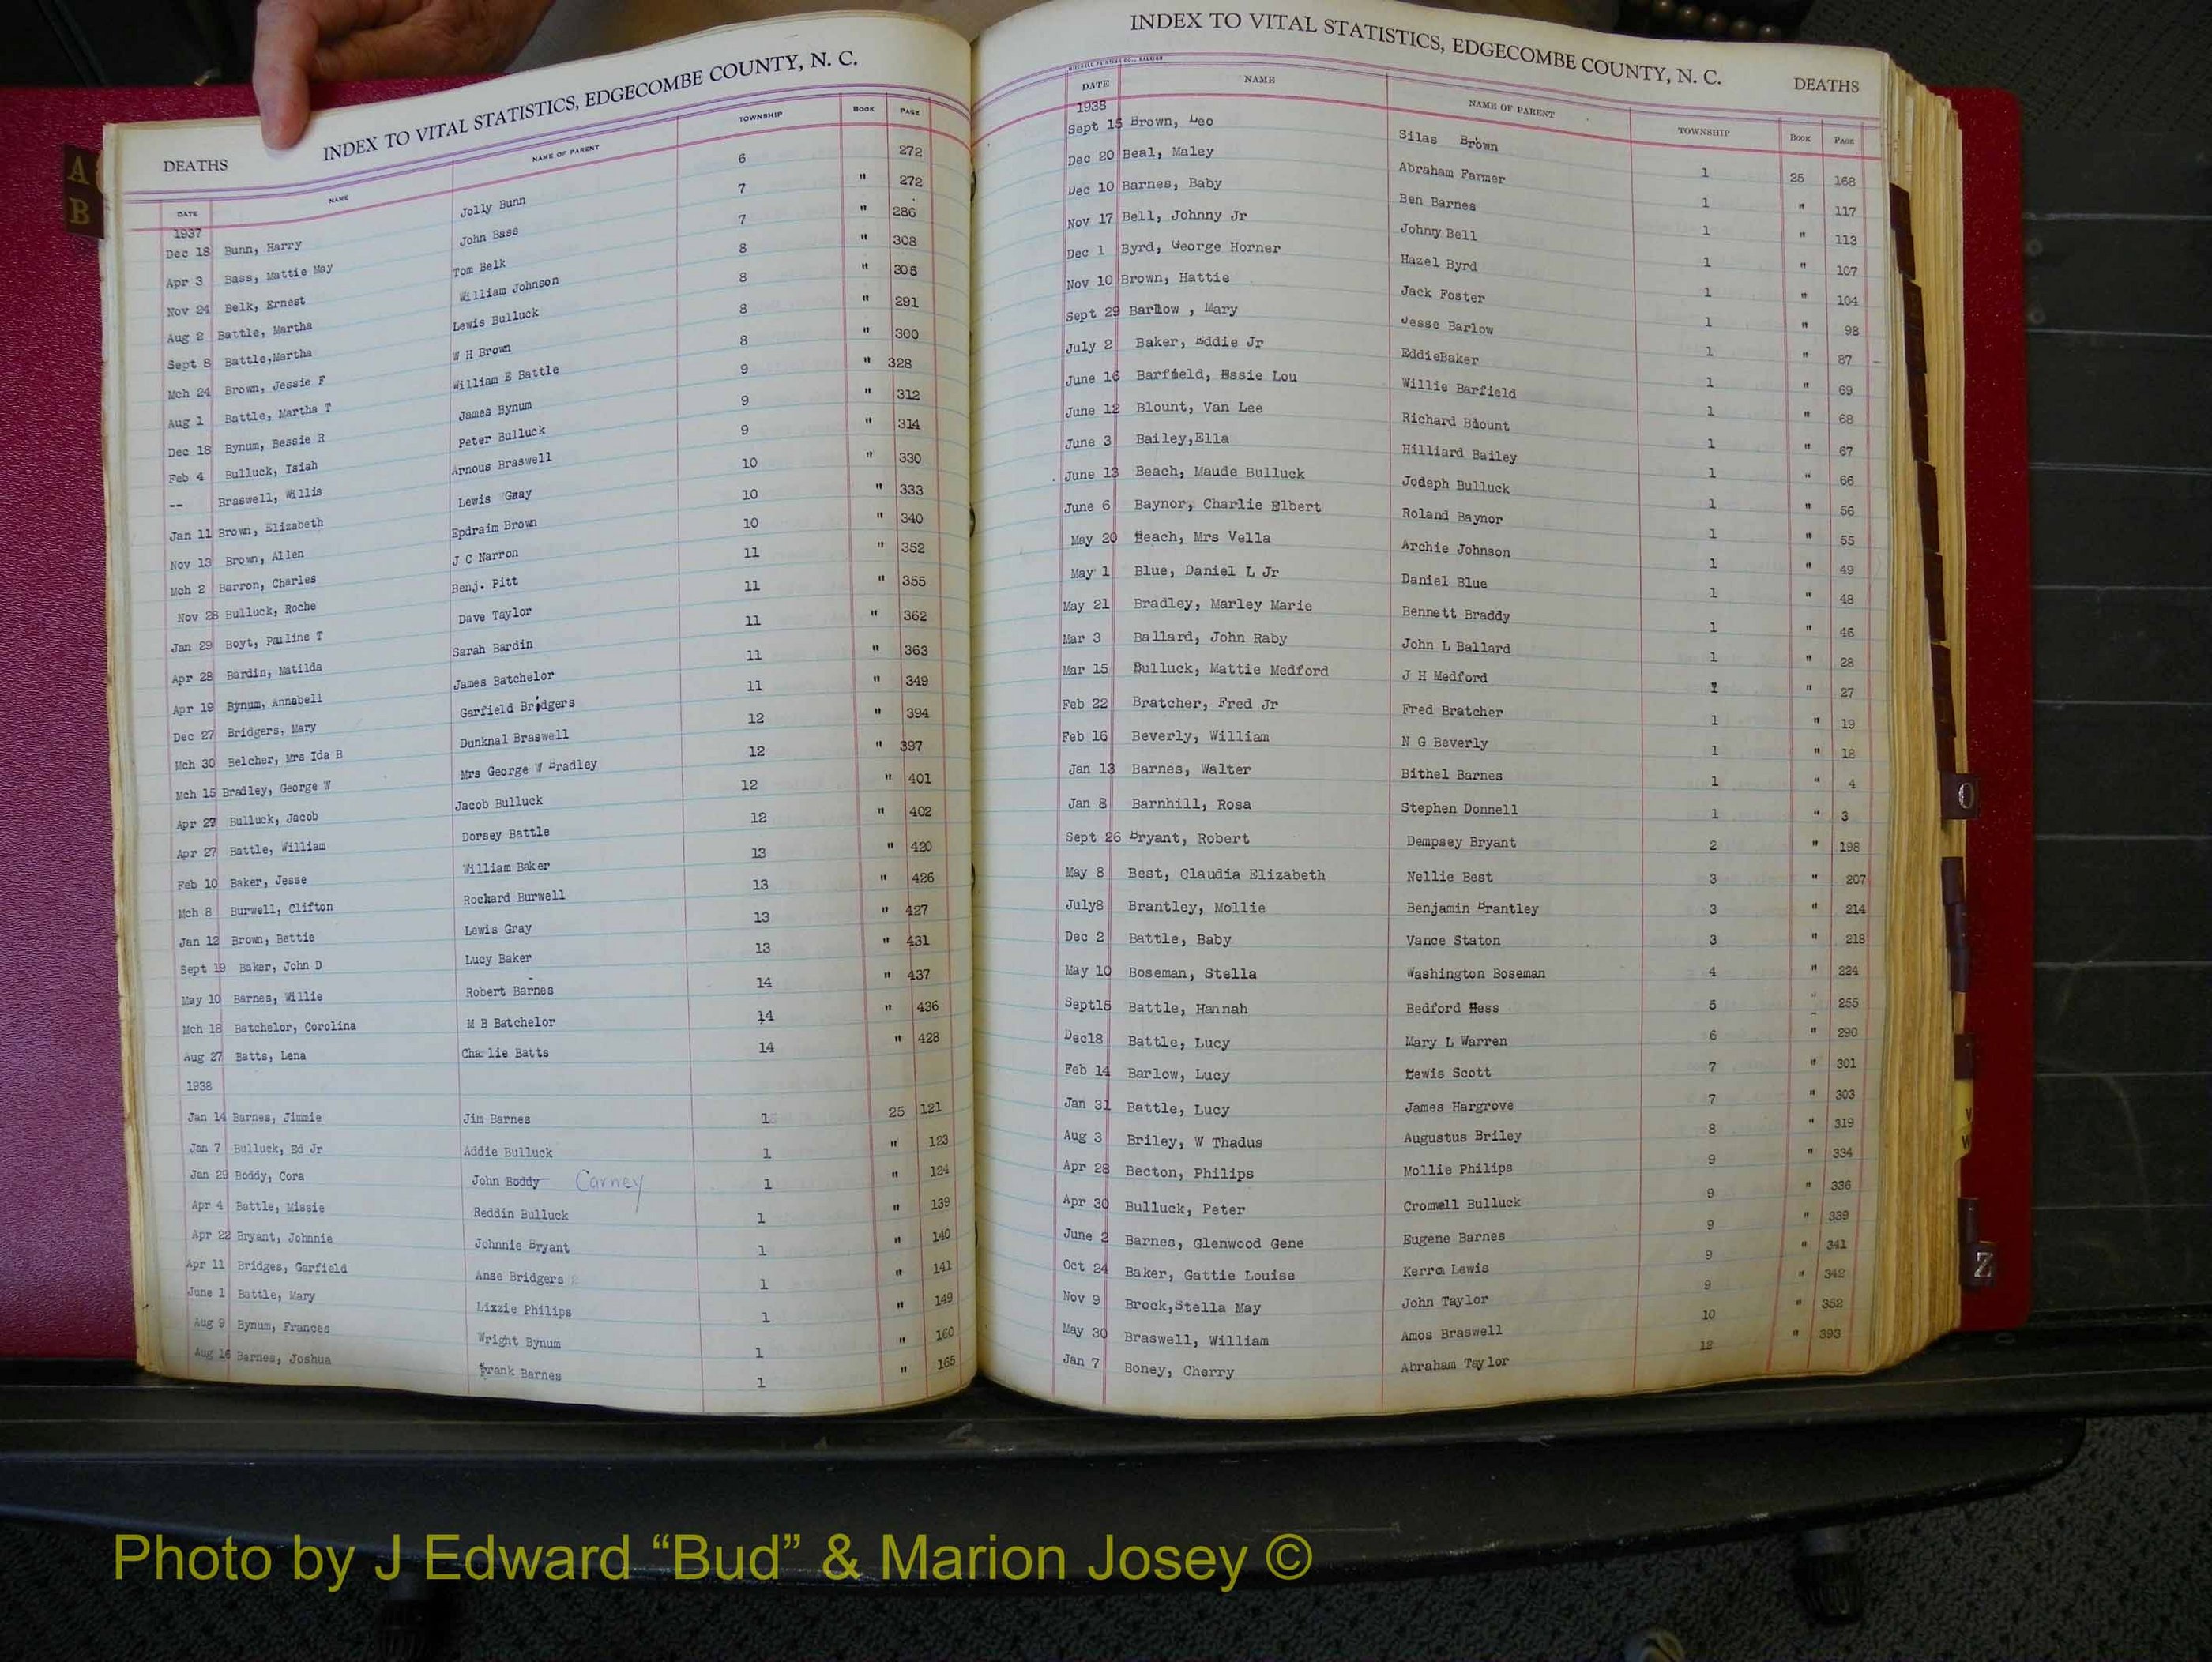 INDEX TO VITAL STATISTICS, EDGECOMBE COUNTY, N. C.
DEATHS
DATE NAME NAME OF PARENT TOWNSHIP BOOK PAGE
1937
Dec 18 Bunn, Harry Jolly Bunn 6 272
Apr 3 Bass, Mattie May John Bass 7 " 272
Nov 24 Belk, Ernest Tom Belk 7 " 286
Aug 2 Battle, Martha William Johnson 8 " 308
Sept 8 Battle,Martha Lewis Bulluck 8 " 305
Mch 24 Brown, Jessie F W H Brown 8 " 291
Aug 1 Battle, Martha T William E Battle 8 " 300
Dec 18 Bynum, Bessie R James Bynum 9 " 328
Feb 4 Bulluck, Isiah Peter Bulluck 9 " 312
-- Braswell, Willis Arnous Braswell 9 " 314
Jan 11 Brown, Elizabeth Lewis Gray 10 " 330
Nov 13 Brown, Allen Epdraim Brown 10 " 333
Mch 2 Barron, Charles J C Narron 10 " 340
Nov 28 Bulluck, Roche Benj. Pitt 11 " 352
Jan 29 Boyt, Pauline T Dave Taylor 11 " 355
Apr 28 Bardin, Matilda Sarah Bardin 11 " 362
Apr 19 Bynum, Annabell James Batchelor 11 " 363
Dec 27 Bridgers, Mary Garfield Bridgers 11 " 349
Mch 30 Belcher, Mrs Ida B Dunknal Braswell 12 " 394
Mch 15 Bradley, George W Mrs George W Bradley 12 " 397
Apr 27 Bulluck, Jacob Jacob Bulluck 12 " 401
Apr 27 Battle, William Dorsey Battle 12 " 402
Feb 10 Baker, Jesse William Baker 13 " 420
Mch 8 Burwell, Clifton Rockard Burwell 13 " 426
Jan 12 Brown, Bettie Lewis Gray 13 " 427
Sept 19 Baker, John D Lucy Baker 13 " 431
May 10 Barnes, Willie Robert Barnes 14 " 437
Mch 18 Batchelor, Corolina M B Batchelor 14 " 436
Aug 27 Batts, Lena Charlie Batts 14 " 428
1938
Jan 14 Barnes, Jimmie Jim Barnes 1 25 121
Jan 7 Bulluck, Ed Jr Addie Bulluck 1 " 123
Jan 29 Boddy, Cora John Boddy Carney 1 " 124
Apr 4 Battle, Missie Reddin Bulluck 1 " 139
Apr 22 Bryant, Johnnie Johnnie Bryant 1 " 140
Apr 11 Bridges, Garfield Anse Bridgers 1 " 141
June 1 Battle, Mary Lizzie Philips 1 " 149
Aug 9 Bynum, Frances Wright Bynum 1 " 160
Aug 16 Barnes, Joshua Frank Barnes 1 " 165
INDEX TO VITAL STATISTICS, EDGECOMBE COUNTY, N. C.
DEATHS
MITCHELL PRINTING CO., RALEIGH
DATE NAME NAME OF PARENT TOWNSHIP BOOK PAGE
1938
Sept 15 Brown, Leo Silas Brown 1 25 168
Dec 20 Beal, Maley Abraham Farmer 1 " 117
Dec 10 Barnes, Baby Ben Barnes 1 " 113
Nov 17 Bell, Johnny Jr Johny Bell 1 " 107
Dec 1 Byrd, George Horner Hazel Byrd 1 " 104
Nov 10 Brown, Hattie Jack Foster 1 " 98
Sept 29 Barlow , Mary Jesse Barlow 1 " 87
July 2 Baker, Eddie Jr EddieBaker 1 " 69
June 16 Barfield, Essie Lou Willie Barfield 1 " 68
June 12 Blount, Van Lee Richard Blount 1 " 67
June 3 Bailey,Ella Hilliard Bailey 1 " 66
June 13 Beach, Maude Bulluck Jodeph Bulluck 1 " 56
June 6 Baynor, Charlie Elbert Roland Baynor 1 " 55
May 20 Beach, Mrs Vella Archie Johnson 1 " 49
May 1 Blue, Daniel L Jr Daniel Blue 1 " 48
May 21 Bradley, Marley Marie Bennett Braddy 1 " 46
Mar 3 Ballard, John Raby John L Ballard 1 " 28
Mar 15 Bulluck, Mattie Medford J H Medford 1 " 27
Feb 22 Bratcher, Fred Jr Fred Bratcher 1 " 19
Feb 16 Beverly, William N G Beverly 1 " 18
Jan 13 Barnes, Walter Bithel Barnes 1 " 4
Jan 8 Barnhill, Rosa Stephen Donnell 1 " 3
Sept 26 Bryant, Robert Dempsey Bryant 2 " 198
May 8 Best, Claudia Elizabeth Nellie Best 3 " 207
July8 Brantley, Mollie Benjamin Brantley 3 " 214
Dec 2 Battle, Baby Vance Staton 3 " 218
May 10 Boseman, Stella Washington Boseman 4 " 224
Sept15 Battle, Hannah Bedford Hess 5 " 255
Dec18 Battle, Lucy Mary L Warren 6 " 290
Feb 14 Barlow, Lucy Lewis Scott 7 " 301
Jan 31 Battle, Lucy James Hargrove 7 " 303
Aug 3 Briley, W Thadus Augustus Briley 8 " 319
Apr 28 Becton, Philips Mollie Philips 9 " 334
Apr 30 Bulluck, Peter Cromwell Bulluck 9 " 336
June 2 Barnes, Glenwood Gene Eugene Barnes 9 " 339
Oct 24 Baker, Gattie Louise Kerra Lewis 9 " 341
Nov 9 Brock,Stella May John Taylor 9 " 342
May 30 Braswell, William Amos Braswell 10 " 352
Jan 7 Boney, Cherry Abraham Taylor 12 " 393
A
B
O
V
W
Z
Photo by J Edward “Bud” & Marion Josey ©